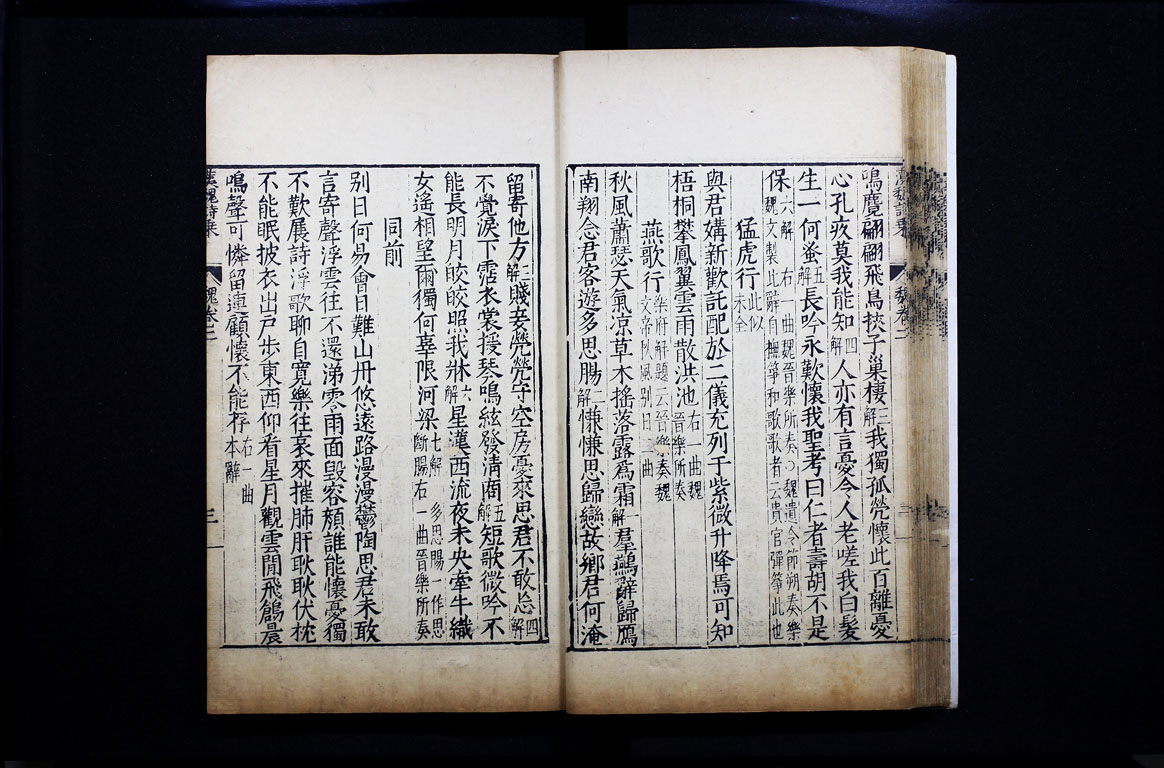 鳴麑翩翩飛鳥挾子巢棲三解我獨孤煢懷此百離憂
心孔疚莫我能知四解人亦有言憂令人老嗟我白髮
生一何蚤五解長吟永歎懷我聖考曰仁者壽胡不是
保六解右一曲魏晉樂所奏○魏遺令節朔奏樂魏文製此辭自撫箏和歌歌者云貴官彈箏此也
猛虎行此似未全
與君媾新歡託配於二儀充列于紫微升降焉可知
梧桐攀鳳翼雲雨散洪池右一曲魏晉樂所奏
燕歌行樂府解題云晉樂奏魏文帝秋風别日二曲
秋風蕭瑟天氣凉草木搖落露爲霜一解羣鷰辭歸鴈
南翔念君客遊多思腸二解慊慊思歸戀故鄉君何淹
留寄他方三解賤妾煢煢守空房憂來思君不敢忘四解
不覺淚下霑衣裳援琴鳴絃發清商五解短歌微吟不
能長明月皎皎照我牀六解星漢西流夜未央牽牛織
女遙相望爾獨何辜限河梁七解多思腸一作思斷腸右一曲晉樂所奏
同前
别日何易會日難山川悠遠路漫漫鬱陶思君未敢
言寄聲浮雲往不還涕零雨面毀容顏誰能懷憂獨
不歎展詩浮歌聊自寬樂往哀來摧肺肝耿耿伏枕
不能眠披衣出戸步東西仰看星月觀雲間飛鶬晨
鳴聲可憐留連顧懷不能存右一曲本辭
漢魏詩乘
魏卷二
三